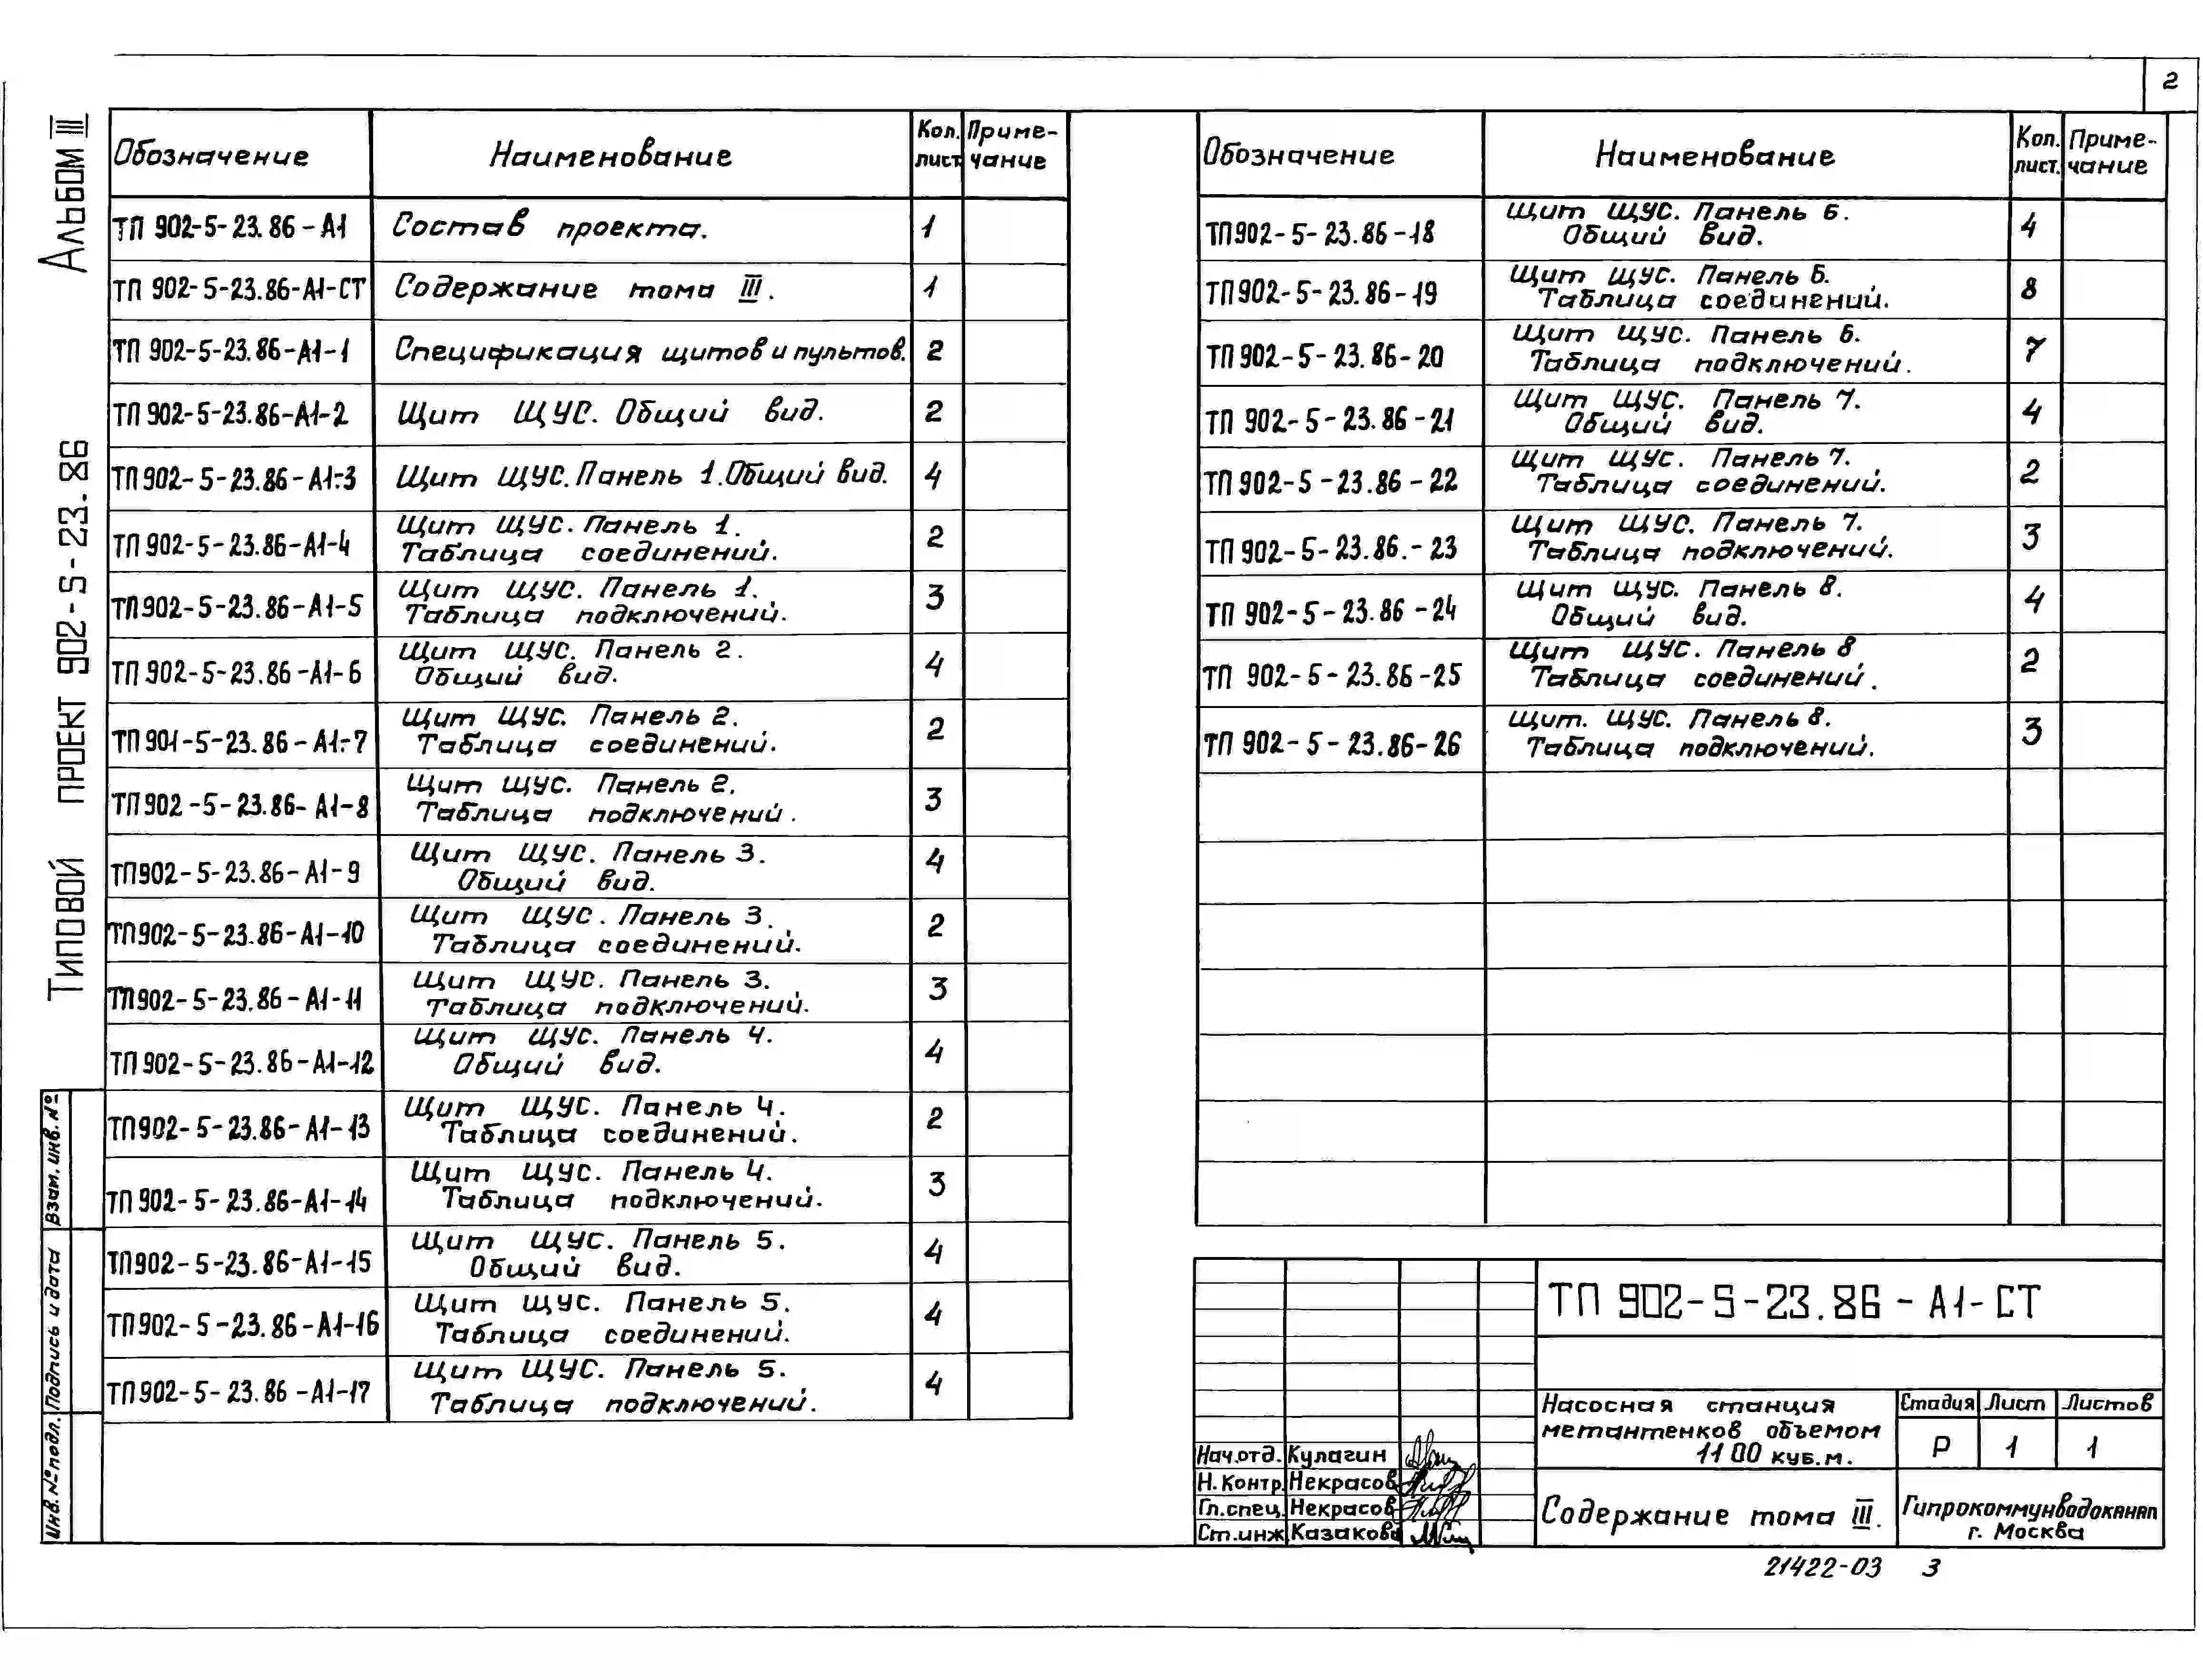 2
Альбом III
Типовой проект 902-5-23.86
Обозначение Наименование Кол. лист. Приме-чание
ТП 902-5-23.86-А1 Состав проекта. 1
ТП 902-5-23.86-А1-СТ Содержание тома III. 1
ТП 902-5-23.86-А1-1 Спецификация щитов и пультов. 2
ТП 902-5-23.86-А1-2 Щит ЩУС. Общий вид. 2
ТП 902-5-23.86-А1-3 Щит ЩУС. Панель 1. Общий вид. 4
ТП 902-5-23.86-А1-4 Щит ЩУС. Панель 1. Таблица соединений. 2
ТП 902-5-23.86-А1-5 Щит ЩУС. Панель 1. Таблица подключений. 3
ТП 902-5-23.86-А1-6 Щит ЩУС. Панель 2. Общий вид. 4
ТП 901-5-23.86-А1-7 Щит ЩУС. Панель 2. Таблица соединений. 2
ТП 902-5-23.86-А1-8 Щит ЩУС. Панель 2. Таблица подключений. 3
ТП 902-5-23.86-А1-9 Щит ЩУС. Панель 3. Общий вид. 4
ТП 902-5-23.86-А1-10 Щит ЩУС. Панель 3. Таблица соединений. 2
ТП 902-5-23.86-А1-11 Щит ЩУС. Панель 3. Таблица подключений. 3
ТП 902-5-23.86-А1-12 Щит ЩУС. Панель 4. Общий вид. 4
ТП 902-5-23.86-А1-13 Щит ЩУС. Панель 4. Таблица соединений. 2
ТП 902-5-23.86-А1-14 Щит ЩУС. Панель 4. Таблица подключений. 3
ТП 902-5-23.86-А1-15 Щит ЩУС. Панель 5. Общий вид. 4
ТП 902-5-23.86-А1-16 Щит ЩУС. Панель 5. Таблица соединений. 4
ТП 902-5-23.86-А1-17 Щит ЩУС. Панель 5. Таблица подключений. 4
Обозначение Наименование Кол. лист. Приме-чание
ТП 902-5-23.86-18 Щит ЩУС. Панель 6. Общий вид. 4
ТП 902-5-23.86-19 Щит ЩУС. Панель 6. Таблица соединений. 8
ТП 902-5-23.86-20 Щит ЩУС. Панель 6. Таблица подключений. 7
ТП 902-5-23.86-21 Щит ЩУС. Панель 7. Общий вид. 4
ТП 902-5-23.86-22 Щит ЩУС. Панель 7. Таблица соединений. 2
ТП 902-5-23.86.-23 Щит ЩУС. Панель 7. Таблица подключений. 3
ТП 902-5-23.86-24 Щит ЩУС. Панель 8. Общий вид. 4
ТП 902-5-23.86-25 Щит ЩУС. Панель 8 Таблица соединений. 2
ТП 902-5-23.86-26 Щит. ЩУС. Панель 8. Таблица подключений. 3
Взам. инв. №
Подпись и дата
Инв. № подл.
ТП 902-5-23.86-А1-СТ
Насосная станция
метантенков объемом
1100 куб.м.
Стадия Лист Листов
Р 1 1
Нач.отд. Кулагин
Н. Контр. Некрасов
Гл.спец. Некрасов
Ст.инж Казакова
Содержание тома III.
Гипрокоммунводоканал
г. Москва
21422-03 3